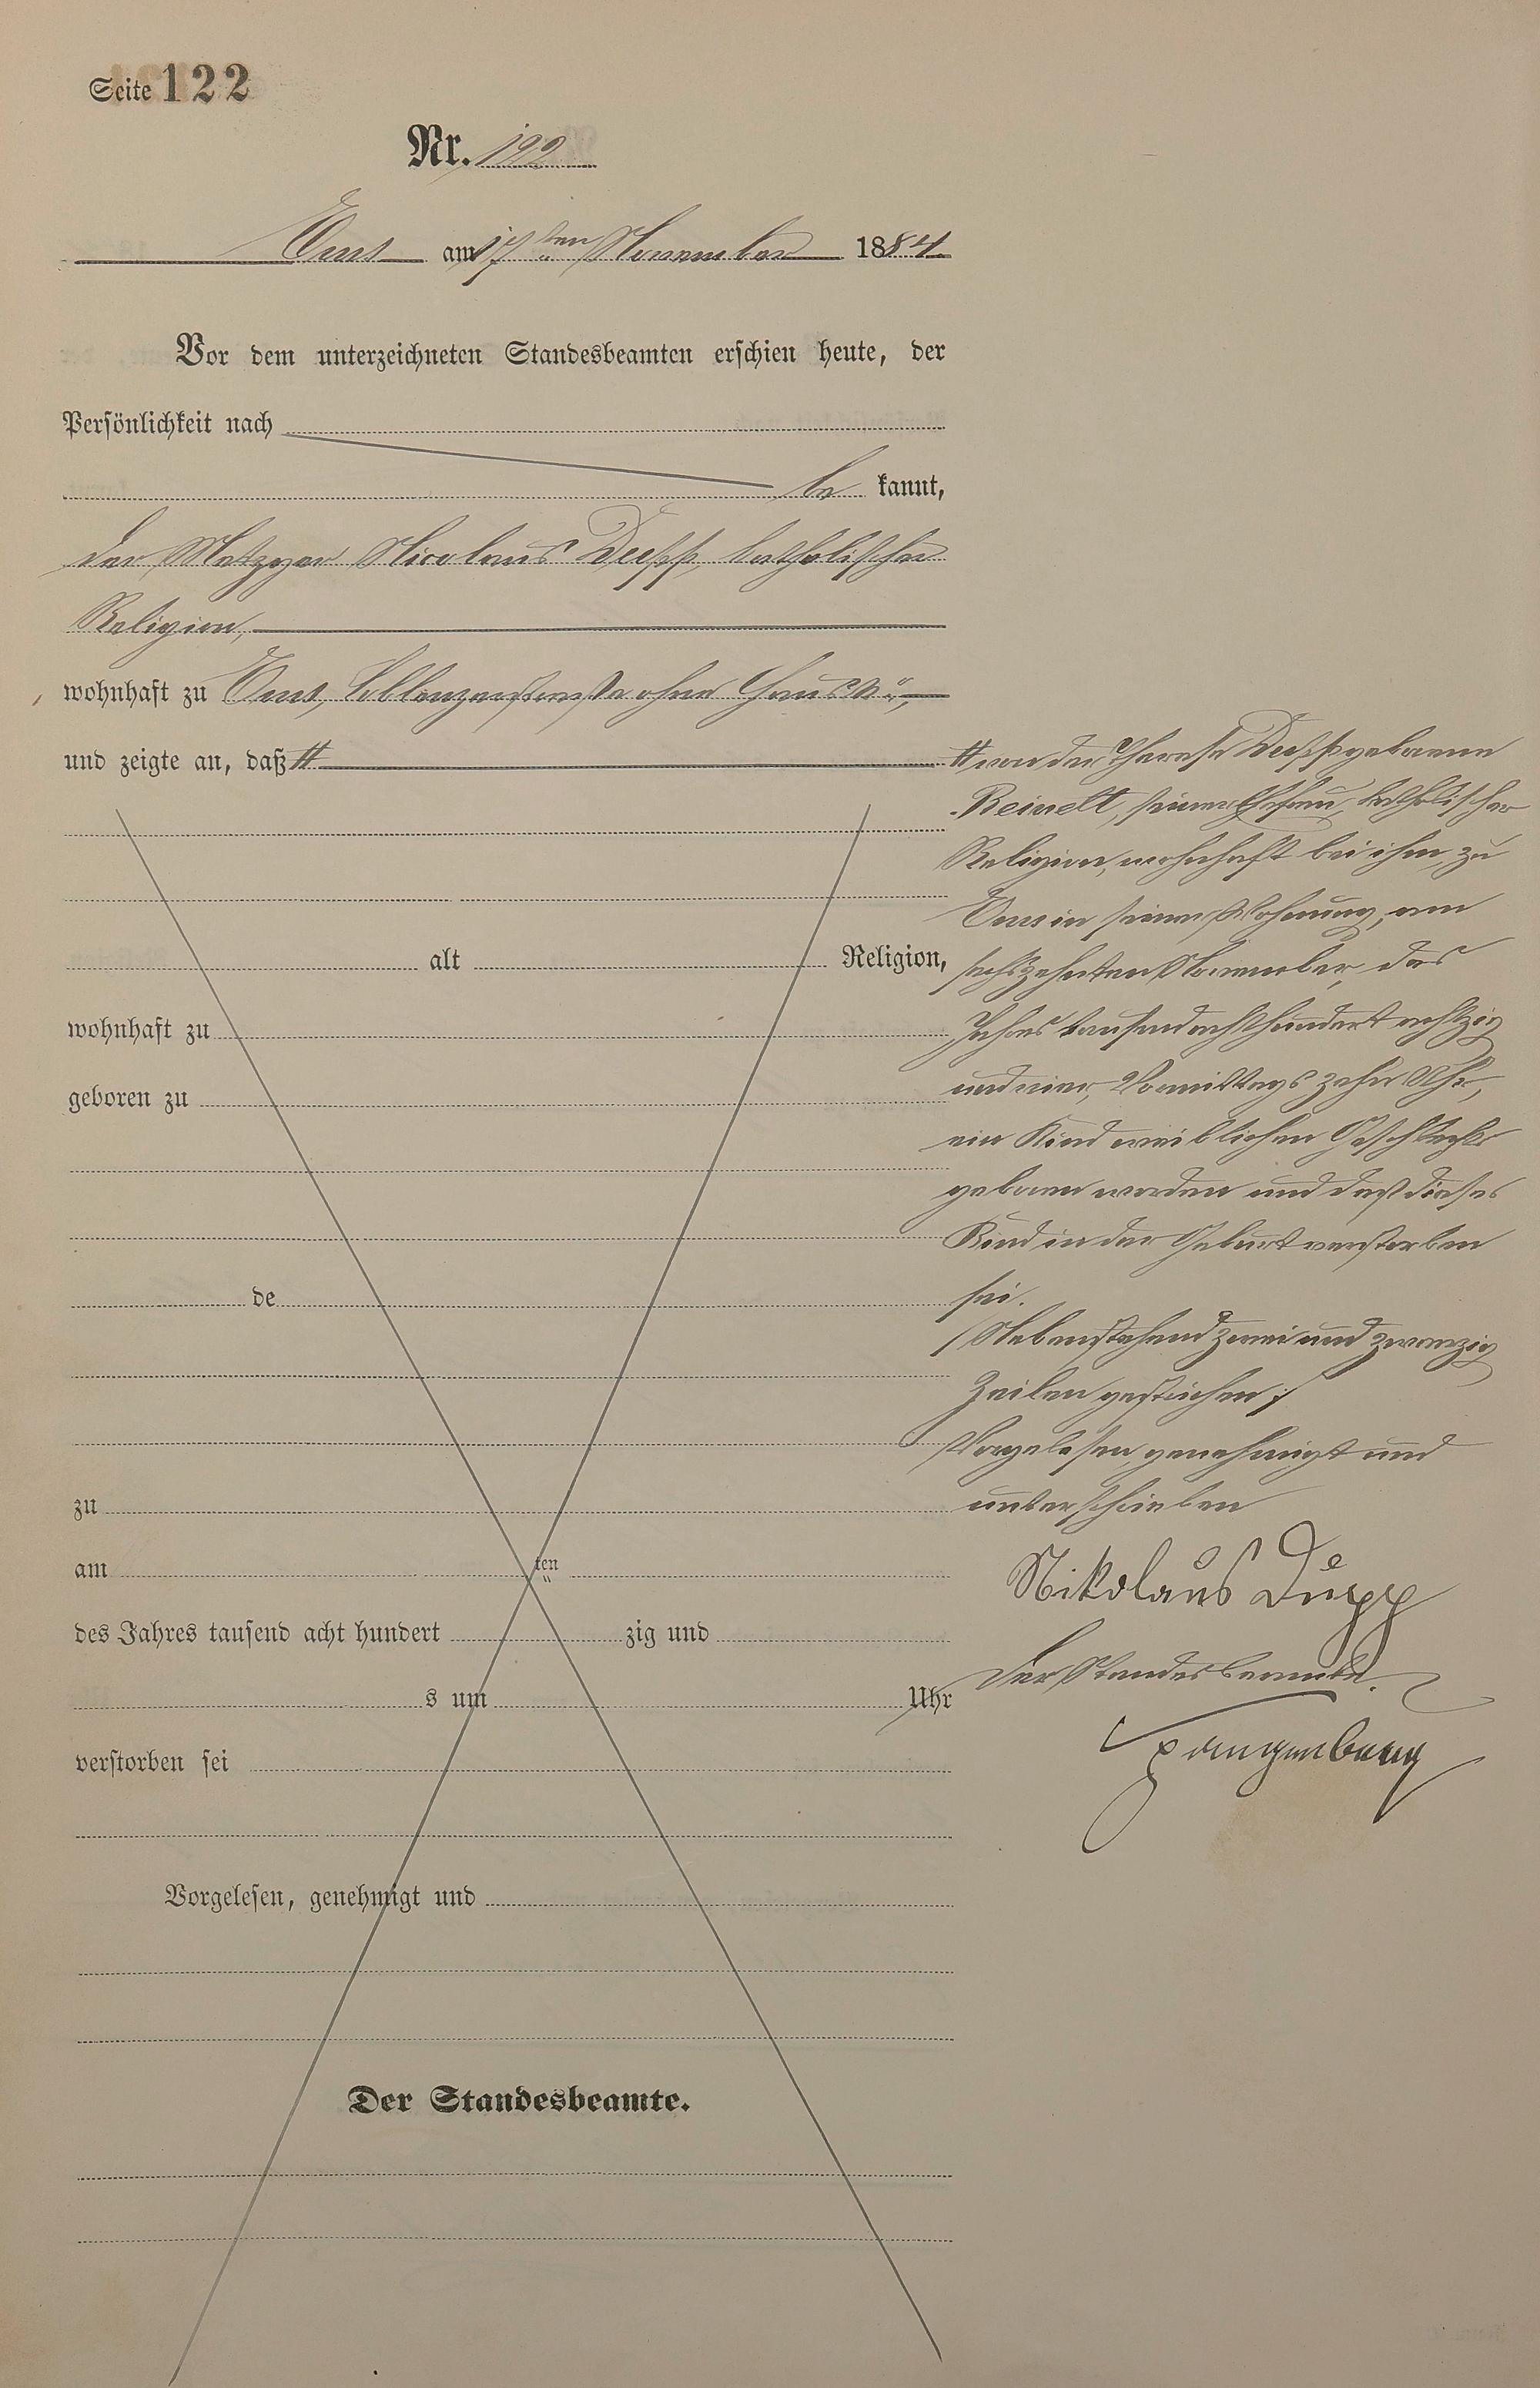 Seite 122
Nr. 122
Ems am 17ten November 1884
Vor dem unterzeichneten Standesbeamten erschien heute, der
Persönlichkeit nach
be kannt,
der Metzger Nicolaus Duepp, katholischer
Religion,
wohnhaft zu Ems, Coblenzerstraße ohne Haus N°.,
und zeigte an, daß #
# von der Therese Duepp geborene
Reinelt, seiner Ehefrau, katholischer
Religion, wohnhaft bei ihm, zu
Ems in seiner Wohnung, am
sechszehnten November, des
Jahres tausend acht hundert achtzig
und vier, Vormittags zehn Uhr,
ein Kind weiblichen Geschlechts
geboren worden und daß dieses
Kind in der Geburt verstorben
sei.
/Nebenstehend zwei und zwanzig
Zeilen gestrichen/
Vorgelesen, genehmigt und
unterschrieben
Nikolaus Düpp
Der Standesbeamte.
Spangenberg
alt Religion,
wohnhaft zu
geboren zu
de
zu
am ten
des Jahres tausend acht hundert zig und
s um Uhr
verstorben sei
Vorgelesen, genehmigt und
Der Standesbeamte.